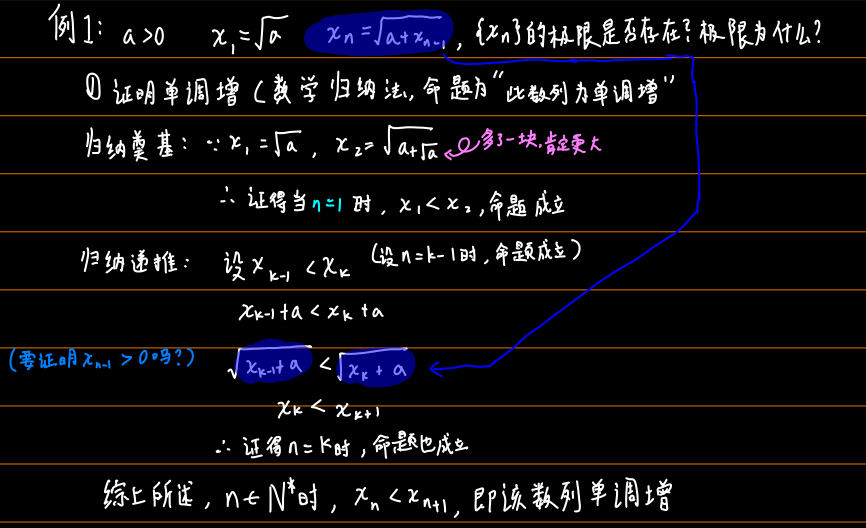 例1: a>0 x₁=√a xₙ=√(a+xₙ₋₁), {xₙ}的极限是否存在?极限为什么?
① 证明单调增 (数学归纳法, 命题为"此数列为单调增"
归纳奠基: ∵ x₁=√a, x₂=√(a+√a) 多了一块,肯定更大
∴ 证得当n=1时, x₁<x₂, 命题成立
归纳递推: 设 xₖ₋₁<xₖ (设n=k-1时, 命题成立)
xₖ₋₁+a<xₖ+a
(要证明xₙ₋₁>0吗?) √(xₖ₋₁+a) < √(xₖ+a)
xₖ<xₖ₊₁
∴ 证得n=k时, 命题也成立
综上所述, n∈N*时, xₙ<xₙ₊₁, 即该数列单调增